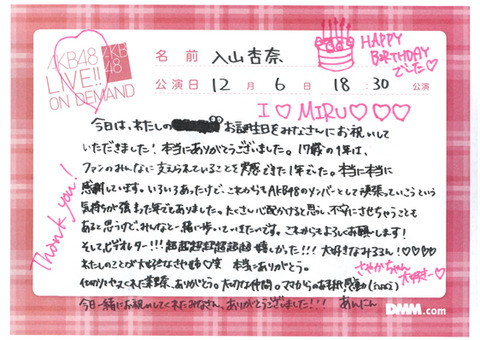 AKB48
LIVE!!
ON DEMAND
AKB
48
名 前 入山杏奈
HAPPY
BIRTHDAY
でした♡
公演日 12 月 6 日 18:30 公演
I ♡ MIRU ♡♡♡
今日は、わたしの お誕生日をみなさんにお祝いして
いただきました！本当にありがとうございました。17歳の1年は、
ファンのみんなに支えられていることを実感できた1年でした。本当に本当に
感謝しています。いろいろあったけど、これからもAKB48のメンバーとして頑張っていこうという
気持ちが強まった年でもありました。たくさん心配かけると思うし、不安にさせちゃうことも
あると思うので、みんなと一緒に歩いていきたいです。これからもよろしくお願いします！
そしてビデオレター!!! 超超超超超超超嬉しかった!!! 大好きなみるるん！♡♡♡♡
わたしのことが大好きなさや姉♡笑 本当にありがとう。
さやかちゃん
大好きー♡
仕切りやってくれた ありがとう。大切な仲間。ママからのお手紙感動
今日一緒にお祝いしてくれたみなさん、ありがとうございました!!! あんにん
Thank you!
DMM.com